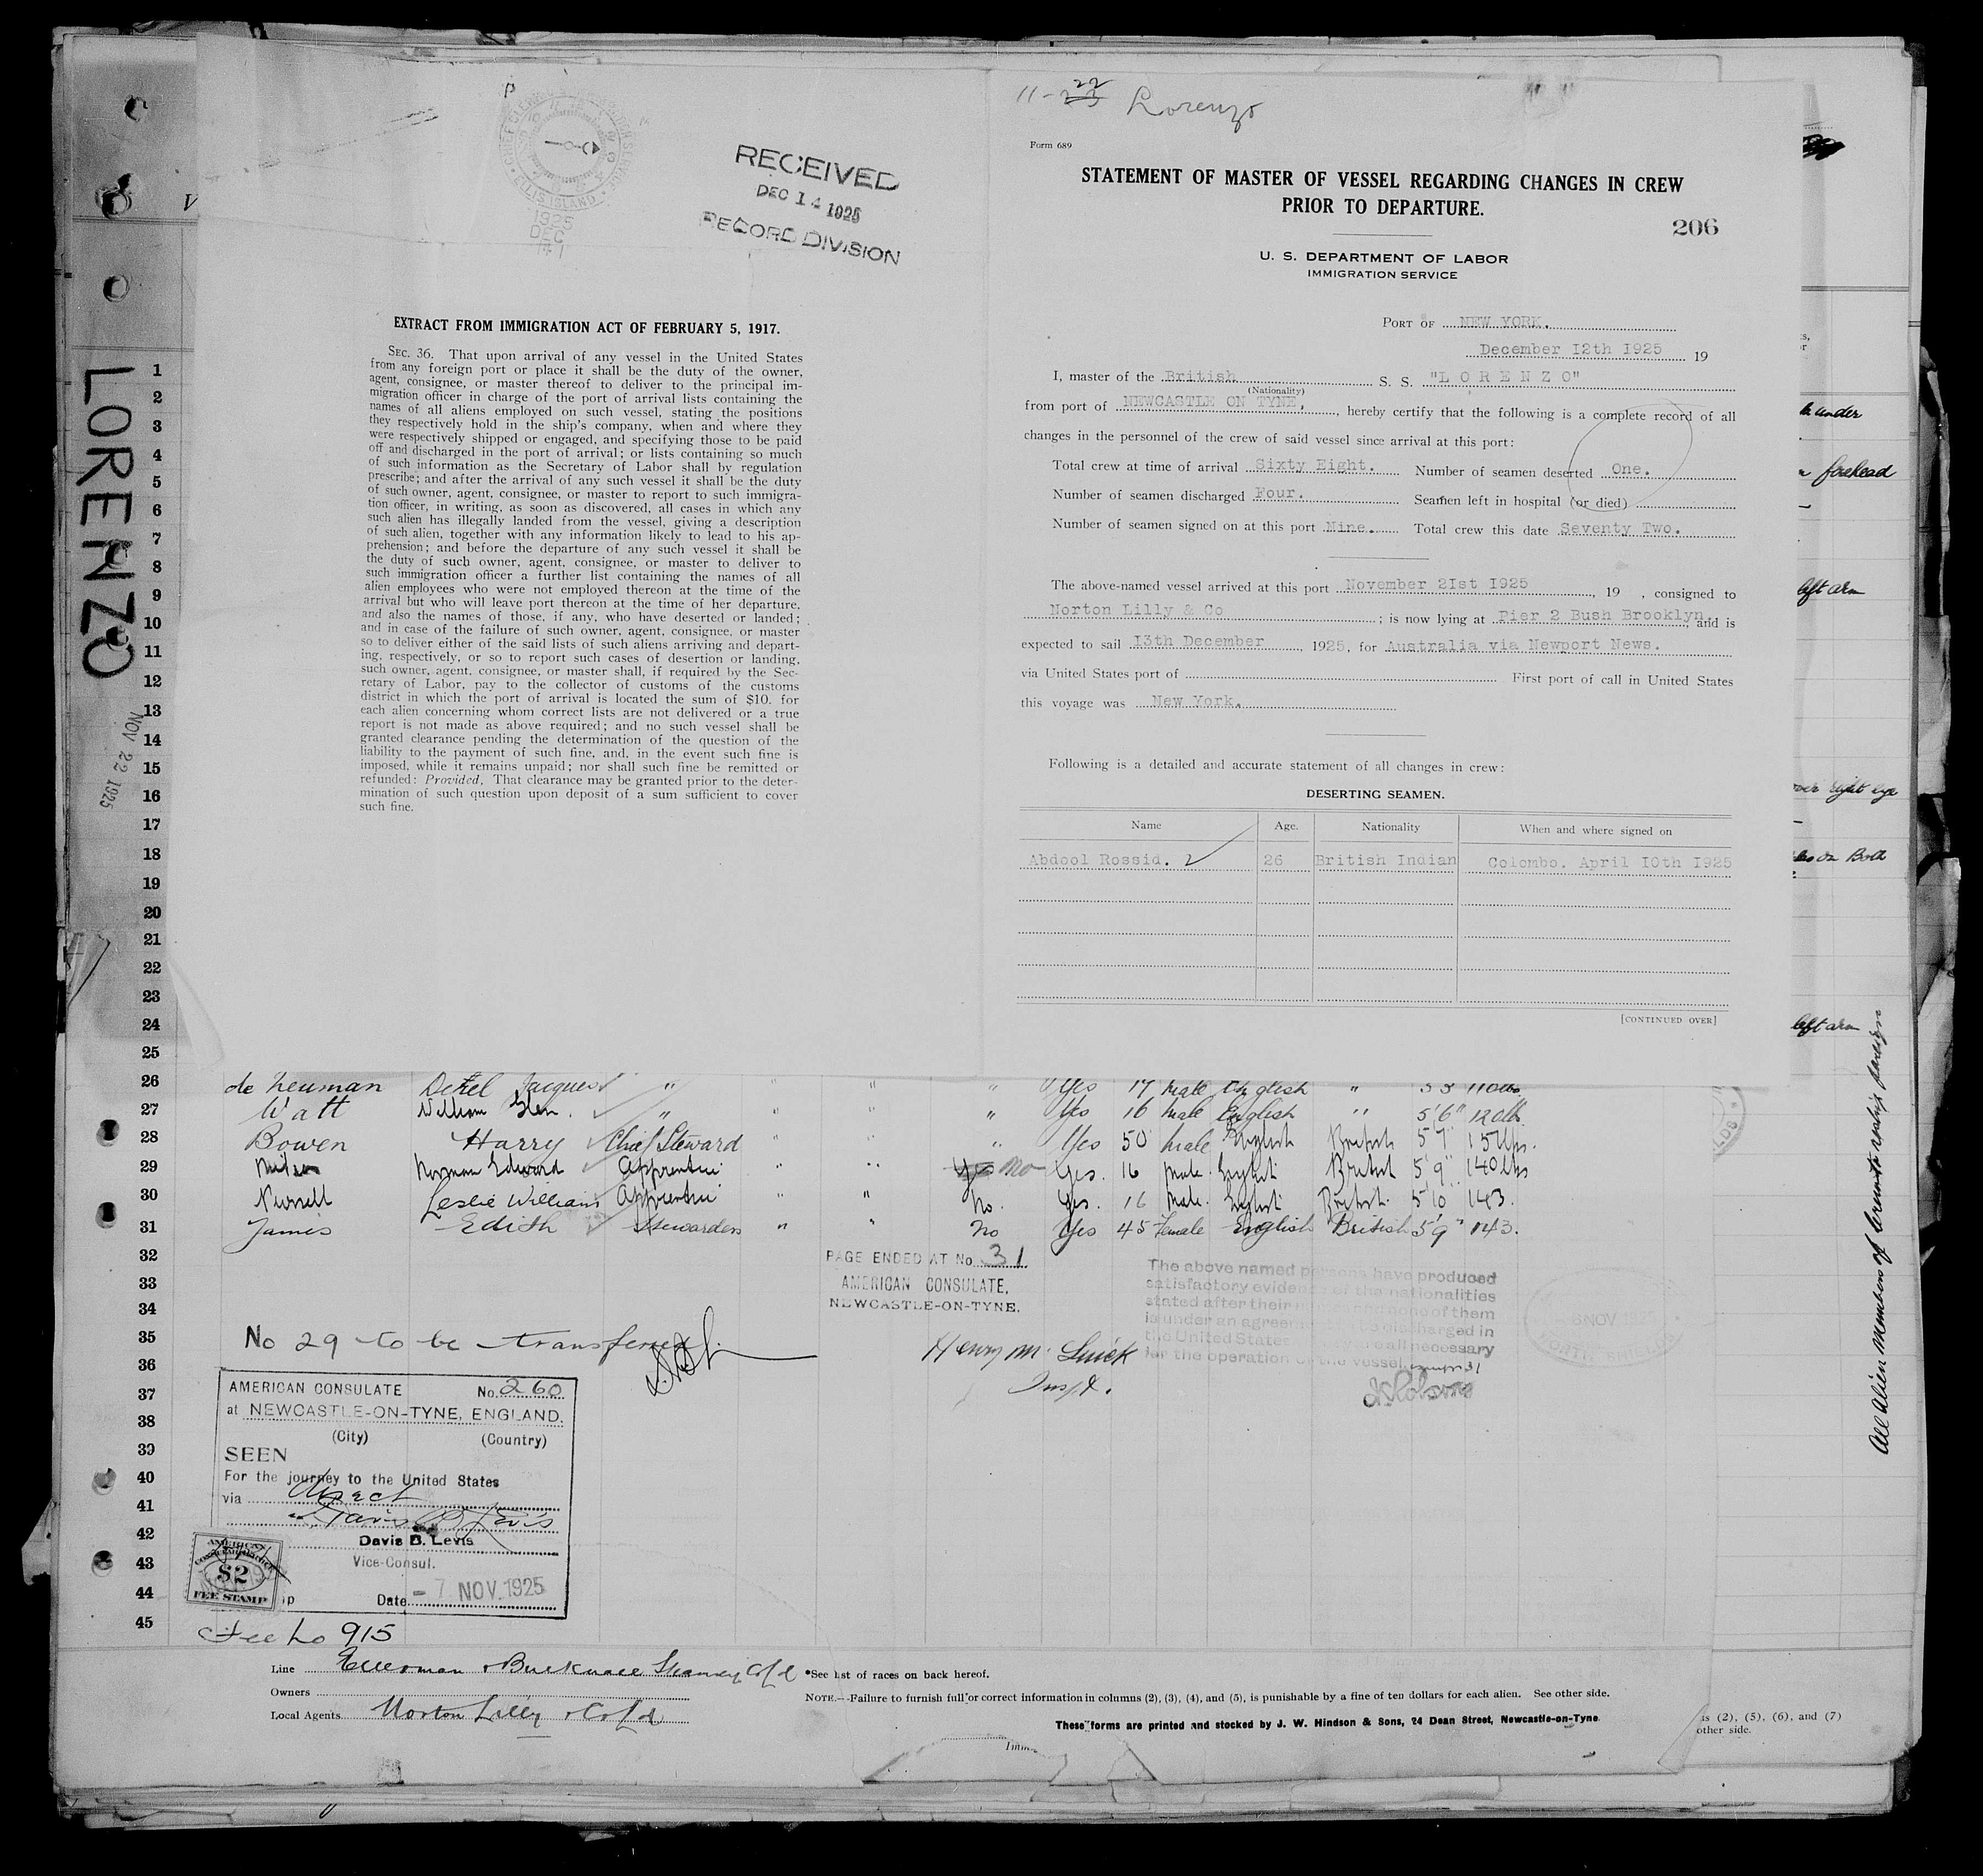 11-22 Lorenzo
RECEIVED
DEC 14 1925
RECORD DIVISION
ELLIS ISLAND
1925
DEC
14
EXTRACT FROM IMMIGRATION ACT OF FEBRUARY 5, 1917.
SEC. 36. That upon arrival of any vessel in the United States
from any foreign port or place it shall be the duty of the owner,
agent, consignee, or master thereof to deliver to the principal im-
migration officer in charge of the port of arrival lists containing the
names of all aliens employed on such vessel, stating the positions
they respectively hold in the ship's company, when and where they
were respectively shipped or engaged, and specifying those to be paid
off and discharged in the port of arrival; or lists containing so much
of such information as the Secretary of Labor shall by regulation
prescribe; and after the arrival of any such vessel it shall be the duty
of such owner, agent, consignee, or master to report to such immigra-
tion officer, in writing, as soon as discovered, all cases in which any
such alien has illegally landed from the vessel, giving a description
of such alien, together with any information likely to lead to his ap-
prehension; and before the departure of any such vessel it shall be
the duty of such owner, agent, consignee, or master to deliver to
such immigration officer a further list containing the names of all
alien employees who were not employed thereon at the time of the
arrival but who will leave port thereon at the time of her departure,
and also the names of those, if any, who have deserted or landed;
and in case of the failure of such owner, agent, consignee, or master
so to deliver either of the said lists of such aliens arriving and depart-
ing, respectively, or so to report such cases of desertion or landing,
such owner, agent, consignee, or master shall, if required by the Sec-
retary of Labor, pay to the collector of customs of the customs
district in which the port of arrival is located the sum of $10. for
each alien concerning whom correct lists are not delivered or a true
report is not made as above required; and no such vessel shall be
granted clearance pending the determination of the question of the
liability to the payment of such fine, and, in the event such fine is
imposed, while it remains unpaid; nor shall such fine be remitted or
refunded: Provided, That clearance may be granted prior to the deter-
mination of such question upon deposit of a sum sufficient to cover
such fine.
Form 689
STATEMENT OF MASTER OF VESSEL REGARDING CHANGES IN CREW
PRIOR TO DEPARTURE.
206
U. S. DEPARTMENT OF LABOR
IMMIGRATION SERVICE
PORT OF NEW YORK.
December 12th 1925 19
I, master of the British S. S. "L O R E N Z O"
(Nationality)
from port of NEWCASTLE ON TYNE, hereby certify that the following is a complete record of all
changes in the personnel of the crew of said vessel since arrival at this port:
Total crew at time of arrival Sixty Eight. Number of seamen deserted One.
Number of seamen discharged Four. Seamen left in hospital (or died)
Number of seamen signed on at this port Nine. Total crew this date Seventy Two.
The above-named vessel arrived at this port November 21st 1925, 19 , consigned to
Norton Lilly & Co ; is now lying at Pier 2 Bush Brooklyn, and is
expected to sail 13th December, 1925, for Australia via Newport News.
via United States port of First port of call in United States
this voyage was New York.
Following is a detailed and accurate statement of all changes in crew:
DESERTING SEAMEN.
Name Age. Nationality When and where signed on
Abdool Rossid. 26 British Indian Colombo. April 10th 1925
[CONTINUED OVER]
LORENZO
NOV 22 1925
1
2
3
4
5
6
7
8
9
10
11
12
13
14
15
16
17
18
19
20
21
22
23
24
25
26 de Neuman Jacques " " " " Yes 17 male English "
27 Watt William Glen. " " " " Yes 16 male English " 5'6" 120lb
28 Bowen Harry Chief Steward " " " Yes 50 male English British 5'7"
29 Norman Edward Apprentice " " No Yes. 16 male. English British 5'9" 140lbs
30 Leslie William Apprentice " " No. Yes. 16 male. English British. 143.
31 James Edith Stewardess " " No Yes 45 Female English British 5'9" 143.
32
33
34
35
36
37
38
39
40
41
42
43
44
45
PAGE ENDED AT No. 31
AMERICAN CONSULATE,
NEWCASTLE-ON-TYNE.
The above named persons have produced
satisfactory evidence of the nationalities
stated after their
the United States
for the operation of the vessel
No 29 to be transferred
Insp.
AMERICAN CONSULATE No. 260
at NEWCASTLE-ON-TYNE, ENGLAND.
(City) (Country)
SEEN
For the journey to the United States
via direct
Davis B. Levis
Davis B. Levis
Vice-Consul.
Date - 7 NOV. 1925
AMERICAN
$2
FEE STAMP
Fee No 915
Line Ellerman & Bucknall Steamship Co Ld
Owners
Local Agents Norton Lilly & Co Ld
*See list of races on back hereof.
NOTE.—Failure to furnish full or correct information in columns (2), (3), (4), and (5), is punishable by a fine of ten dollars for each alien. See other side.
These forms are printed and stocked by J. W. Hindson & Sons, 24 Dean Street, Newcastle-on-Tyne.
(2), (5), (6), and (7)
other side.
under
forehead
left arm
right eye
on Both
left arm
All Alien members of Lorenzo's